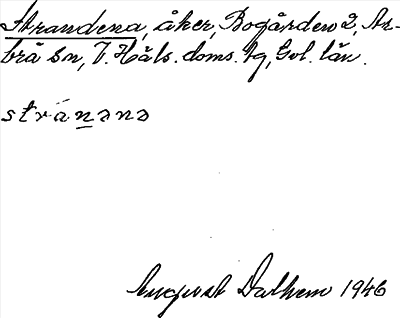 Strandena, åker, Bogården 2, Ar-
brå sn, V. Häls. doms. tg, Gvl. län.
stränənə
August Dalhem 1946